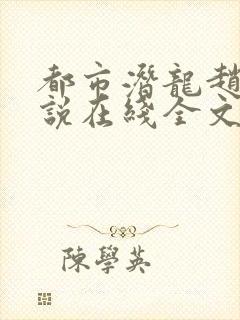 都市潛龍趙
說在綫全文
陳學英